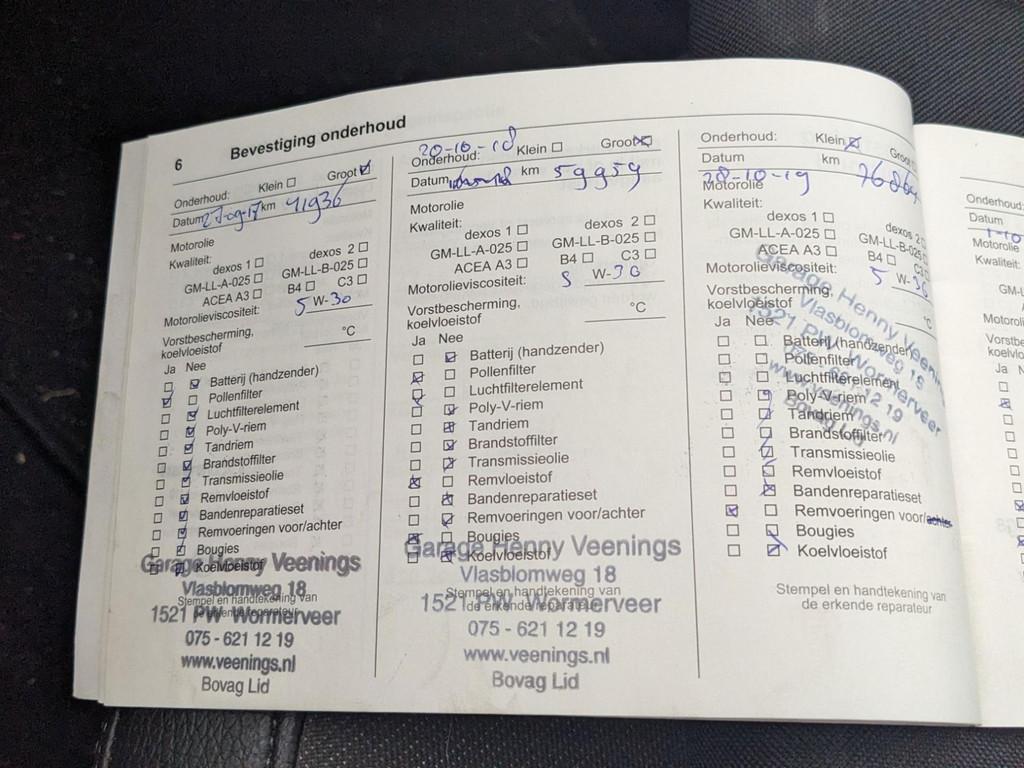 6 Bevestiging onderhoud
Onderhoud: Klein ☐ Groot ☑
Datum 27-09-17 km 41936
Motorolie
Kwaliteit:
dexos 1 ☐ dexos 2 ☐
GM-LL-A-025 ☐ GM-LL-B-025 ☐
ACEA A3 ☐ B4 ☐ C3 ☐
Motorolieviscositeit: 5 W-30
Vorstbescherming,
koelvloeistof °C
Ja Nee
Batterij (handzender)
Pollenfilter
Luchtfilterelement
Poly-V-riem
Tandriem
Brandstoffilter
Transmissieolie
Remvloeistof
Bandenreparatieset
Remvoeringen voor/achter
Bougies
Koelvloeistof
Garage Henny Veenings
Vlasblomweg 18
Stempel en handtekening van
de erkende reparateur
1521 PW Wormerveer
075 - 621 12 19
www.veenings.nl
Bovag Lid
20-10-18
Onderhoud: Klein ☐ Groot ☒
Datum km 59959
Motorolie
Kwaliteit:
dexos 1 ☐ dexos 2 ☐
GM-LL-A-025 ☐ GM-LL-B-025 ☐
ACEA A3 ☐ B4 ☐ C3 ☐
Motorolieviscositeit: 5 W-30
Vorstbescherming,
koelvloeistof °C
Ja Nee
Batterij (handzender)
Pollenfilter
Luchtfilterelement
Poly-V-riem
Tandriem
Brandstoffilter
Transmissieolie
Remvloeistof
Bandenreparatieset
Remvoeringen voor/achter
Bougies
Koelvloeistof
Garage Henny Veenings
Vlasblomweg 18
Stempel en handtekening van
de erkende reparateur
1521 PW Wormerveer
075 - 621 12 19
www.veenings.nl
Bovag Lid
Onderhoud: Klein ☒ Groot
Datum km
28-10-19 7686
Motorolie
Kwaliteit:
dexos 1 ☐ dexos 2 ☐
GM-LL-A-025 ☐ GM-LL-B-025 ☐
ACEA A3 ☐ B4 ☐ C3
Motorolieviscositeit: 5 W-30
Vorstbescherming,
koelvloeistof °C
Ja Nee
Batterij (handzender)
Pollenfilter
Luchtfilterelement
Poly-V-riem
Tandriem
Brandstoffilter
Transmissieolie
Remvloeistof
Bandenreparatieset
Remvoeringen voor/achter
Bougies
Koelvloeistof
Garage Henny Veenin
Vlasblomweg 18
1521 PW Wormerveer
075-621 12 19
www.veenings.nl
Bovag Lid
Stempel en handtekening van
de erkende reparateur
Onderhoud:
Datum
1-10
Motorolie
Kwaliteit:
GM-L
Motoroli
Vorstbe
koelvlo
Ja N